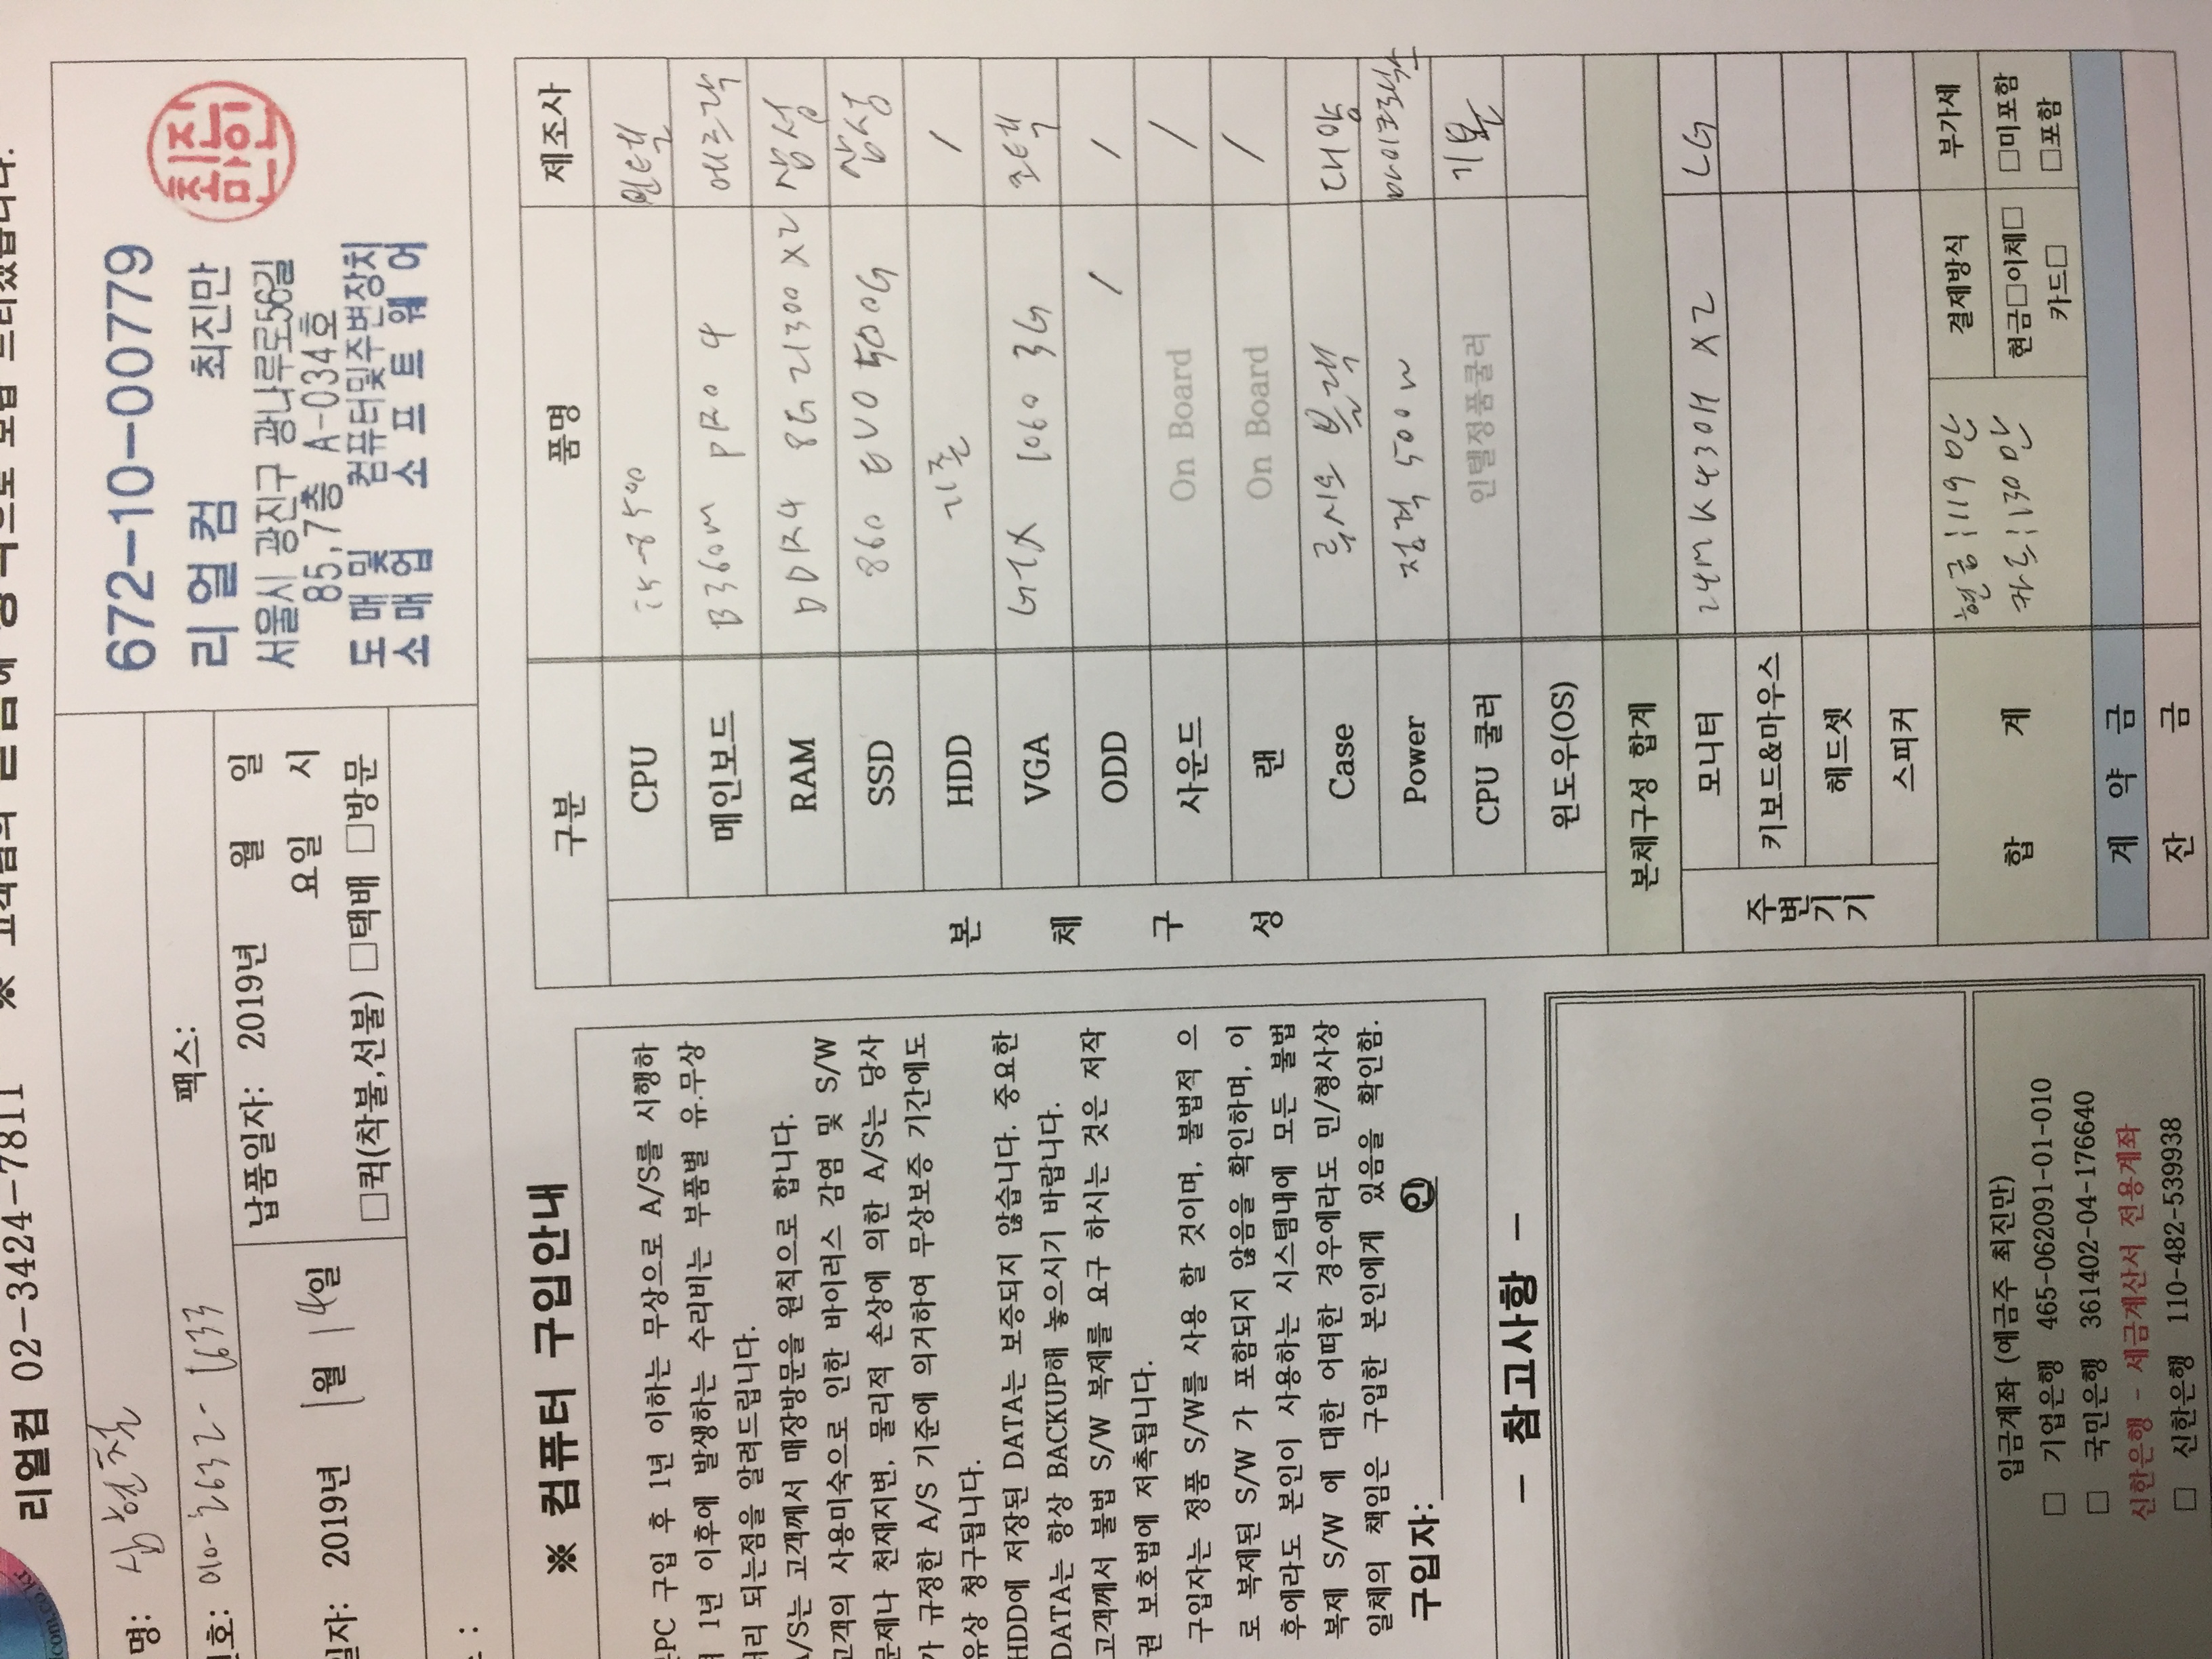 리얼컴 02-3424-7811 ※ 고객님의
명: 심현철
번호: 010-2632-1633
팩스:
일자: 2019년 1월 14일
납품일자: 2019년 월 일
요일 시
□퀵(착불,선불) □택배 □방문
672-10-00779
리얼컴 최진만
서울시 광진구 광나루로56길
85,7층 A-034호
도매및 컴퓨터및주변장치
소매업 소프트웨어
최진만인
※ 컴퓨터 구입안내
PC 구입 후 1년 이하는 무상으로 A/S를 시행하
며 1년 이후에 발생하는 수리비는 부품별 유.무상
처리 되는점을 알려드립니다.
A/S는 고객께서 매장방문을 원칙으로 합니다.
고객의 사용미숙으로 인한 바이러스 감염 및 S/W
문제나 천재지변, 물리적 손상에 의한 A/S는 당사
가 규정한 A/S 기준에 의거하여 무상보증 기간에도
유상 청구됩니다.
HDD에 저장된 DATA는 보증되지 않습니다. 중요한
DATA는 항상 BACKUP해 놓으시기 바랍니다.
고객께서 불법 S/W 복제를 요구 하시는 것은 저작
권 보호법에 저촉됩니다.
구입자는 정품 S/W를 사용 할 것이며, 불법적 으
로 복제된 S/W 가 포함되지 않음을 확인하며, 이
후에라도 본인이 사용하는 시스템내에 모든 불법
복제 S/W 에 대한 어떠한 경우에라도 민/형사상
일체의 책임은 구입한 본인에게 있음을 확인함.
구입자: 인
- 참고사항 -
입금계좌 (예금주 최진만)
□ 기업은행 465-062091-01-010
□ 국민은행 361402-04-176640
신한은행 - 세금계산서 전용계좌
□ 신한은행 110-482-539938
구분 품명 제조사
본체구성
CPU i5-8500 인텔
메인보드 B360M PRO 4 에즈락
RAM DDR4 8G 21300 X2 삼성
SSD 860 EVO 500G 삼성
HDD 기존 /
VGA GTX 1060 3G 조텍
ODD / /
사운드 On Board /
랜 On Board /
Case 루시드 블랙 대양
Power 정격 500W 마이크로닉스
CPU 쿨러 인텔정품쿨러 기본
윈도우(OS)
본체구성 합계
주변기기
모니터 24MK430H X2 LG
키보드&마우스
헤드셋
스피커
합 계 현금:119만 결제방식 부가세
카드:130만 현금□이체□ □미포함
카드□ □포함
계 약 금
잔 금